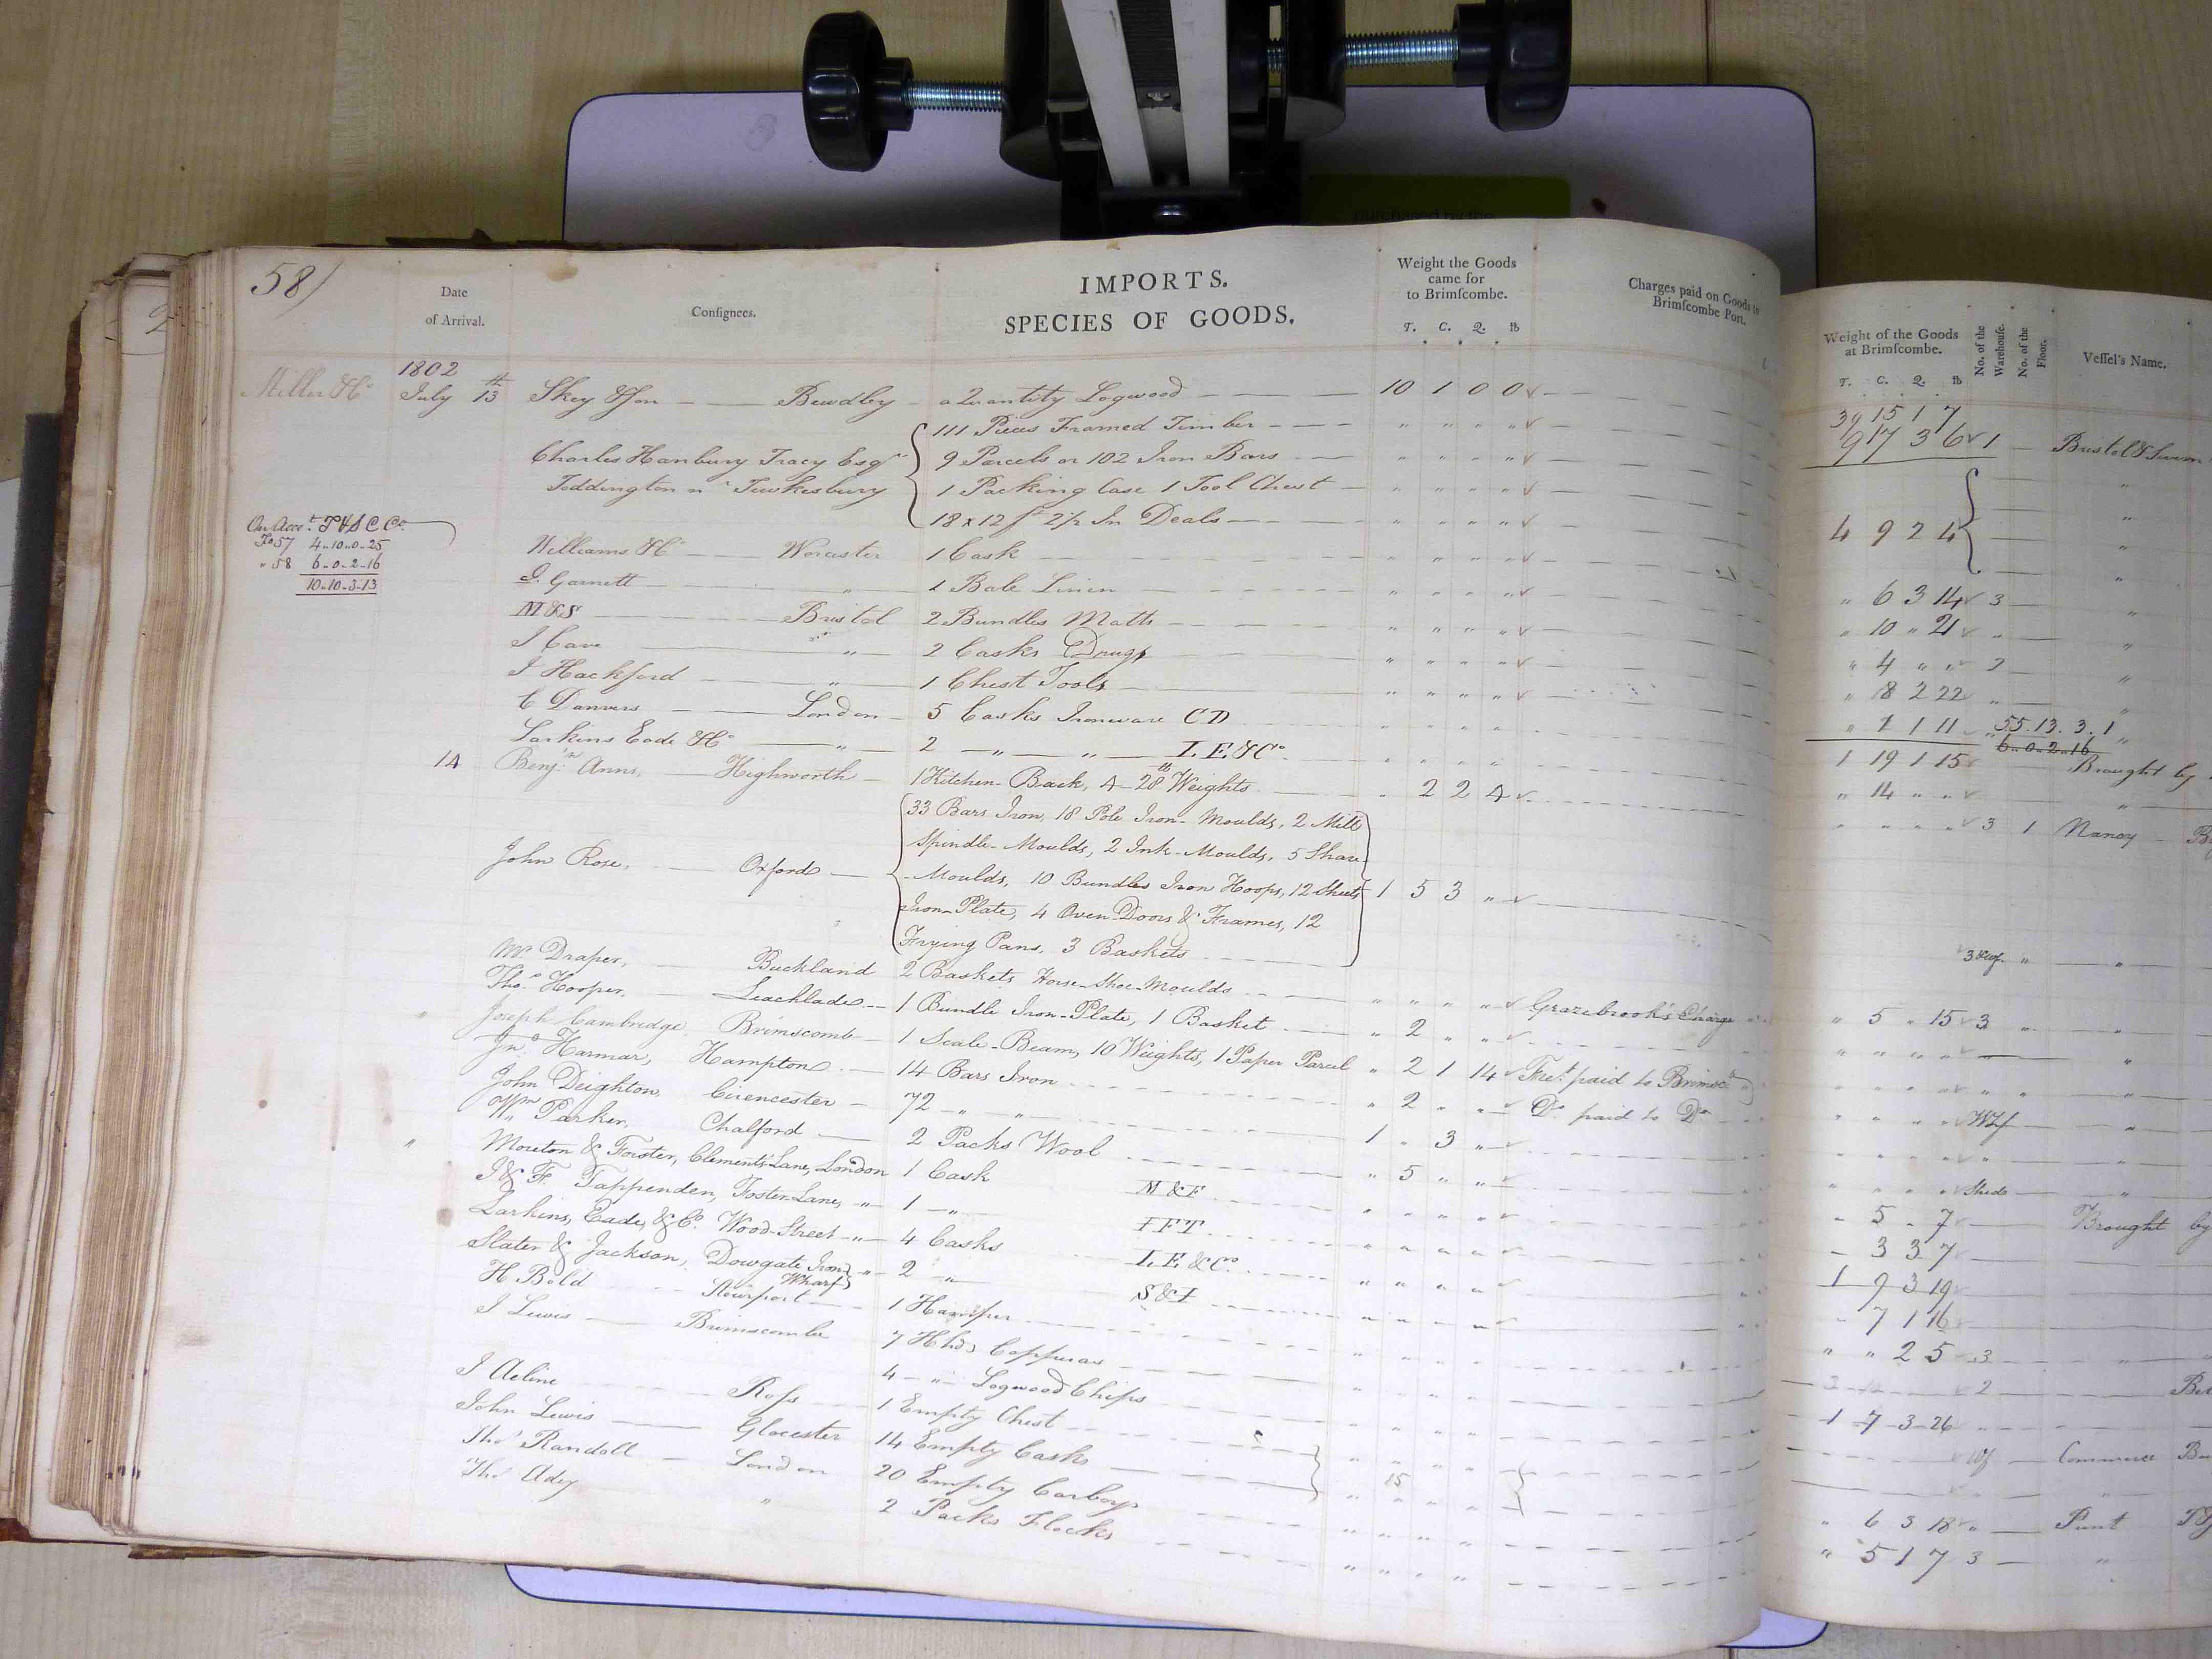 purchased by the
58/
Date
of Arrival.
Conſignees.
IMPORTS.
SPECIES OF GOODS.
Weight the Goods
came for
to Brimſcombe.
T. C. Q. lb
Charges paid on Goods to
Brimſcombe Port.
Weight of the Goods
at Brimſcombe.
T. C. Q. lb
No. of the
Warehouſe.
No. of the
Floor.
Veſſel's Name.
1802
Miller & Co July 13th Skey & Son Bewdley a Quantity Logwood 10 1 0 0
39 15 1 7
9 17 3 6 1 Bristol & Severn
111 Pieces Framed Timber " " " "
Charles Hanbury Tracy Esqr 9 Parcels or 102 Iron Bars " " " "
Toddington nr Tewkesbury 1 Packing Case 1 Tool Chest " " " "
18 x 12 ft 2 1/2 In Deals " " " " 4 9 2 4
On Acct. T & S C Co.
Fo 57 4..10..0..25
" 58 6..0..2..16
10..10..3..13
Williams & Co Worcester 1 Cask " " " " " 6 3 14 3
J. Garnett " 1 Bale Linen " " " " " 10 " 21 "
M & S Bristol 2 Bundles Matts " " " " " 4 " " 2
J Cave " 2 Casks Drugs " " " " " 8 2 22 "
J Hackford " 1 Chest Tools " " " " " 1 1 11 " 55.13.3.1
6..0..2..16
C Danvers London 5 Casks Ironware CD " " " " 1 19 1 15 Brought by
Larkins Eade & Co " 2 " " L. E & Co " " " " " 14 " "
14 Benjn Anns, Highworth 1 Kitchen-Back, 4-28lb Weights " 2 2 4 " " " " 3 1 Nancy
33 Bars Iron, 18 Pole Iron-Moulds, 2 Mill
Spindle-Moulds, 2 Ink-Moulds, 5 Share-
John Rose, Oxford Moulds, 10 Bundles Iron Hoops, 12 Sheets 1 5 3 "
Iron-Plate, 4 Oven-Doors & Frames, 12
Frying Pans, 3 Baskets
Wm. Draper, Buckland 2 Baskets Horse-Shoe-Moulds " " " " Grazebrook's Charge " 5 " 15 3 " "
Thos. Hooper, Leachlade 1 Bundle Iron-Plate, 1 Basket " 2 " "
" Joseph Cambridge, Brimscomb 1 Scale-Beam, 10 Weights, 1 Paper Parcel " 2 1 14 Fret. paid to Brimsc
Jno. Harmar, Hampton 14 Bars Iron " 2 " " Do paid to Do
John Deighton, Cirencester 72 " " 1 " 3 "
Wm Parker, Chalford 2 Packs Wool " 5 " " Sheds
" Moreton & Forster, Clements Lane, London 1 Cask M & F " " " " 5 " 7 Brought by
I & F. Tappenden, Foster-Lane, " 1 " IFT " " " " 3 3 7
Larkins, Eade, & Co. Wood-Street " 4 Casks L.E & Co. " " " " 1 9 3 19
Slater & Jackson, Dowgate Iron " 2 " S & I " " " " 7 1 16
Wharf
H Bold Newport 1 Hamper " " " " " " 2 5 3
J Lewis Brimscombe 7 Hhds Copperas " " " " 2
4 " Logwood Chips " " " " 1 7 3 26
J Acline Ross 1 Empty Chest " " " " Commerce
John Lewis Glocester 14 Empty Casks " 15 " "
Thos Randoll London 20 Empty Carboys " " " " " 6 3 18 " Punt
Thos Adey " 2 Packs Flocks " " " " " 5 1 7 3 "